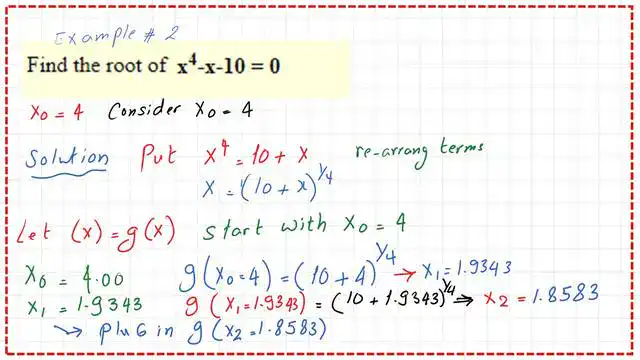 Example # 2
Find the root of x⁴-x-10 = 0
x₀ = 4 Consider x₀ = 4
Solution Put x⁴ = 10 + x re-arrang terms
x = (10 + x)^1/4
Let (x) = g(x) start with x₀ = 4
x₀ = 4.00 g(x₀=4) = (10 + 4)^1/4 → x₁ = 1.9343
x₁ = 1.9343 g(x₁=1.9343) = (10 + 1.9343)^1/4 ⇒ x₂ = 1.8583
↳ plug in g(x₂=1.8583)